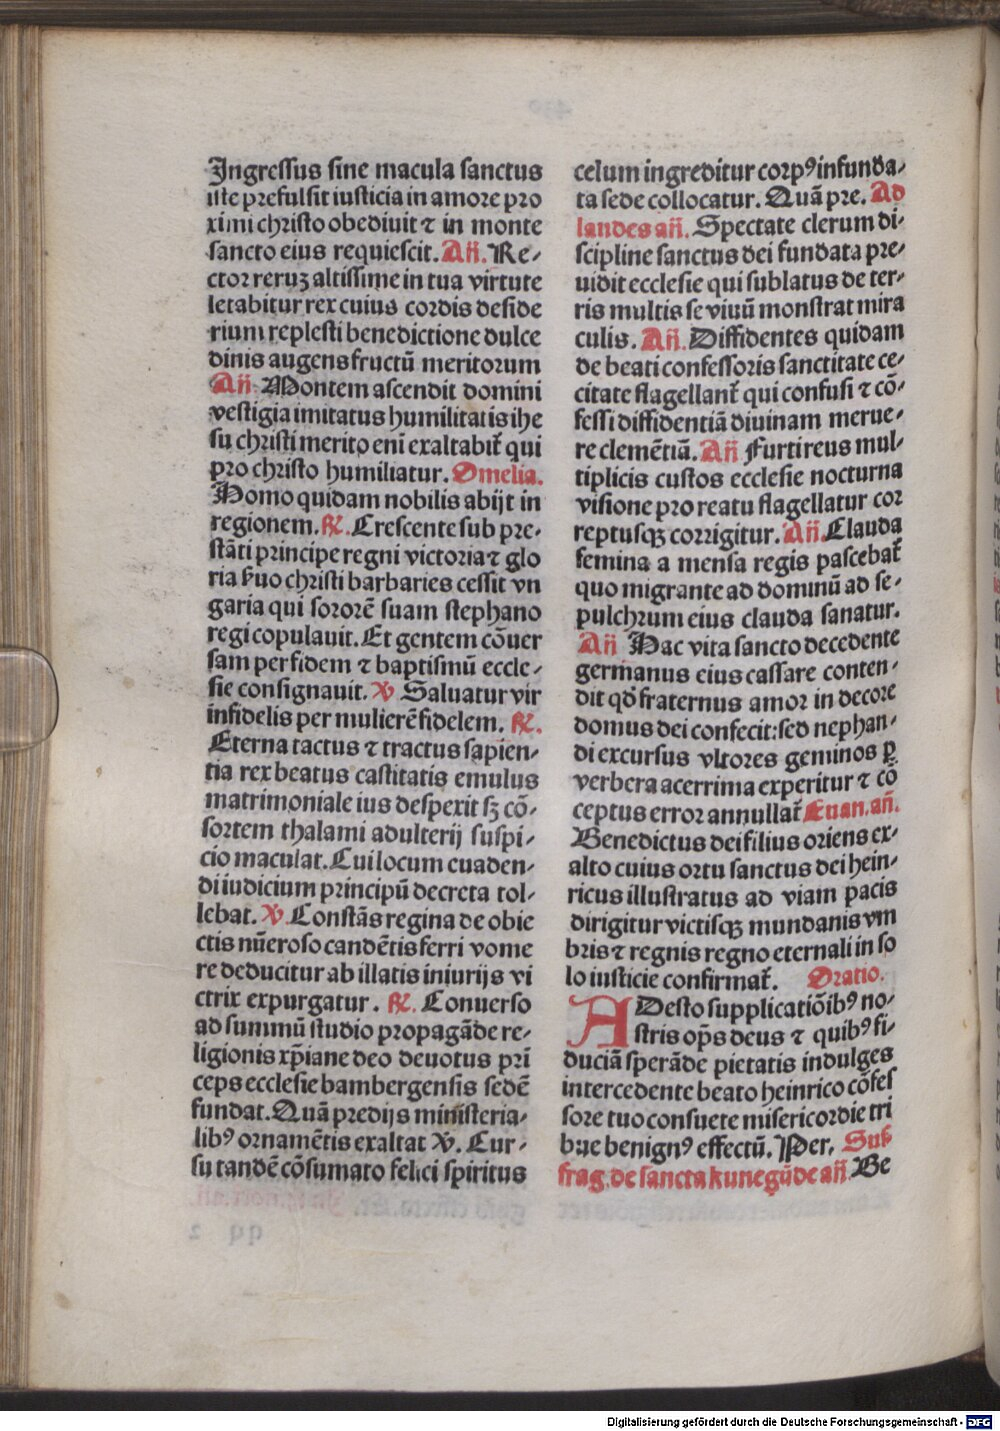 Ingressus sine macula sanctus
iste prefulsit iusticia in amore pro
ximi christo obediuit ⁊ in monte
sancto eius requiescit. Añ. Re-
ctor reruꝫ altissime in tua virtute
letabitur rex cuius cordis deside
rium replesti benedictione dulce
dinis augens fructū meritorum
Añ. Montem ascendit domini
vestigia imitatus humilitatis ihe
su christi merito eni exaltabit᷑ qui
pro christo humiliatur. Omelia.
Homo quidam nobilis abijt in
regionem. ℟. Crescente sub pre-
stāti principe regni victoria ⁊ glo
ria ẜuo christi barbaries cessit vn
garia qui sororē suam stephano
regi copulauit. Et gentem cōuer
sam per fidem ⁊ baptismū eccle-
sie consignauit. ℣ Saluatur vir
infidelis per mulierē fidelem. ℟.
Eterna tactus ⁊ tractus sapien-
tia rex beatus castitatis emulus
matrimoniale ius despexit sꝫ cō-
sortem thalami adulterij suspi-
cio maculat. Cui locum euaden-
di iudicium principū decreta tol-
lebat. ℣ Constās regina de obie
ctis nūeroso candētis ferri vome
re deducitur ab illatis iniurijs vi
ctrix expurgatur. ℟. Conuerso
ad summū studio propagāde re-
ligionis xp̄iane deo deuotus prī
ceps ecclesie bambergensis sedē
fundat. Quā predijs ministeria-
libꝰ ornamētis exaltat ℣. Cur-
su tandē cōsumato felici spiritus
celum ingreditur corpꝰ in funda-
ta sede collocatur. Quā pre. Ad
laudes añ. Spectate clerum di-
scipline sanctus dei fundata pre-
uidit ecclesie qui sublatus de ter-
ris multis se viuū monstrat mira
culis. Añ. Diffidentes quidam
de beati confessoris sanctitate ce-
citate flagellant᷑ qui confusi ⁊ cō-
fessi diffidentiā diuinam merue-
re clemētiā. Añ Furti reus mul-
tiplicis custos ecclesie nocturna
visione pro reatu flagellatur cor
reptusqꝫ corrigitur. Añ. Clauda
femina a mensa regis pascebat᷑
quo migrante ad dominū ad se-
pulchrum eius clauda sanatur.
Añ Hac vita sancto decedente
germanus eius cassare conten-
dit qđ fraternus amor in decore
domus dei confecit: sed nephan-
di excursus vltores geminos ꝑ
verbera acerrima experitur ⁊ cō
ceptus error annullat᷑ Euan. añ.
Benedictus dei filius oriens ex-
alto cuius ortu sanctus dei hein-
ricus illustratus ad viam pacis
dirigitur victisqꝫ mundanis vm
bris ⁊ regnis regno eternali in so
lo iusticie confirmat᷑. Oratio.
ADesto supplicatiōibꝰ no-
stris op̄s deus ⁊ quibꝰ fi-
duciā sperāde pietatis indulges
intercedente beato heinrico cōfes
sore tuo consuete misericordie tri
bue benignꝰ effectū. Per. Suf
frag. de sancta kunegūde añ. Be
Digitalisierung gefördert durch die Deutsche Forschungsgemeinschaft - DFG